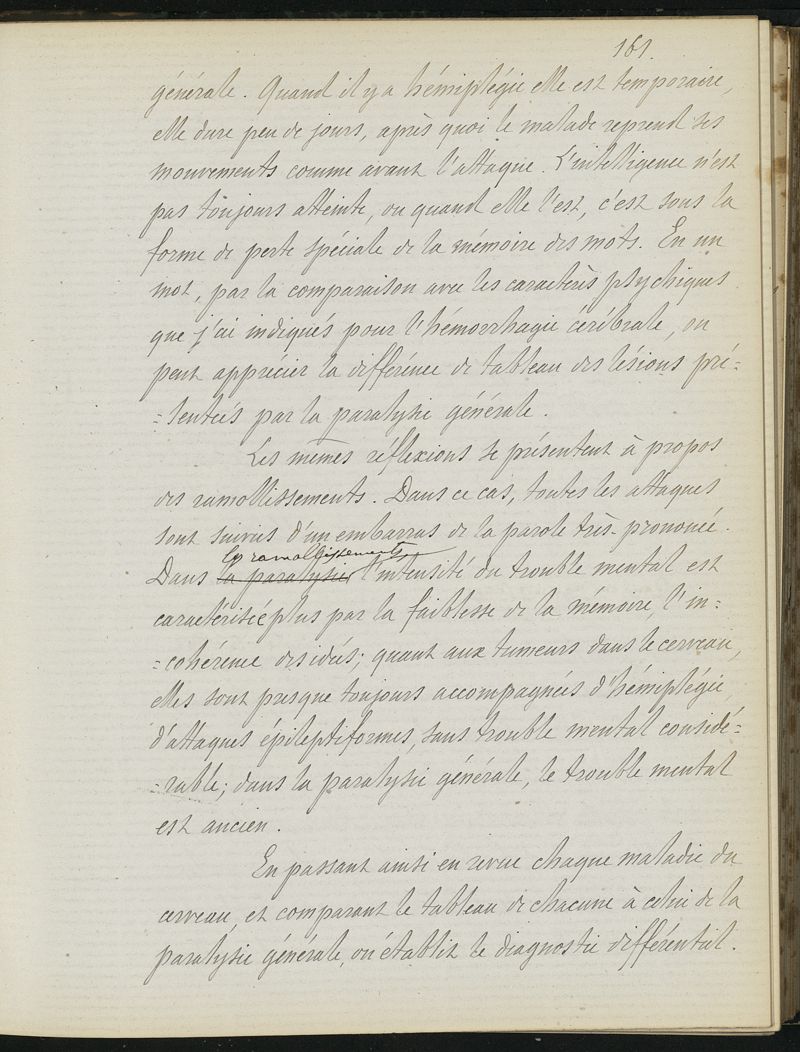 161.
générale. Quand il y a hémiplégie elle est temporaire,
elle dure peu de jours, après quoi le malade reprend ses
mouvements comme avant l'attaque. L'intelligence n'est
pas toujours atteinte, ou quand elle l'est, c'est sous la
forme de perte spéciale de la mémoire des mots. En un
mot, par la comparaison avec les caractères psychiques
que j'ai indiqués pour l'hémorrhagie cérébrale, on
peut apprécier la différence de tableau des lésions pré-
-sentées par la paralysie générale.
Les mêmes réflexions se présentent à propos
des ramollissements. Dans ce cas, toutes les attaques
sont suivies d'un embarras de la parole très-prononcé.
les ramollissements
Dans la paralysie l'intensité du trouble mental est
caractérisée plus par la faiblesse de la mémoire, l'in-
-cohérence des idées; quant aux tumeurs dans le cerveau,
elles sont presque toujours accompagnées d'hémiplégie,
d'attaques épileptiformes, sans trouble mental considé-
-rable; dans la paralysie générale, le trouble mental
est ancien.
En passant ainsi en revue chaque maladie du
cerveau, et comparant le tableau de chacune à celui de la
paralysie générale, on établit le diagnostic différentiel.